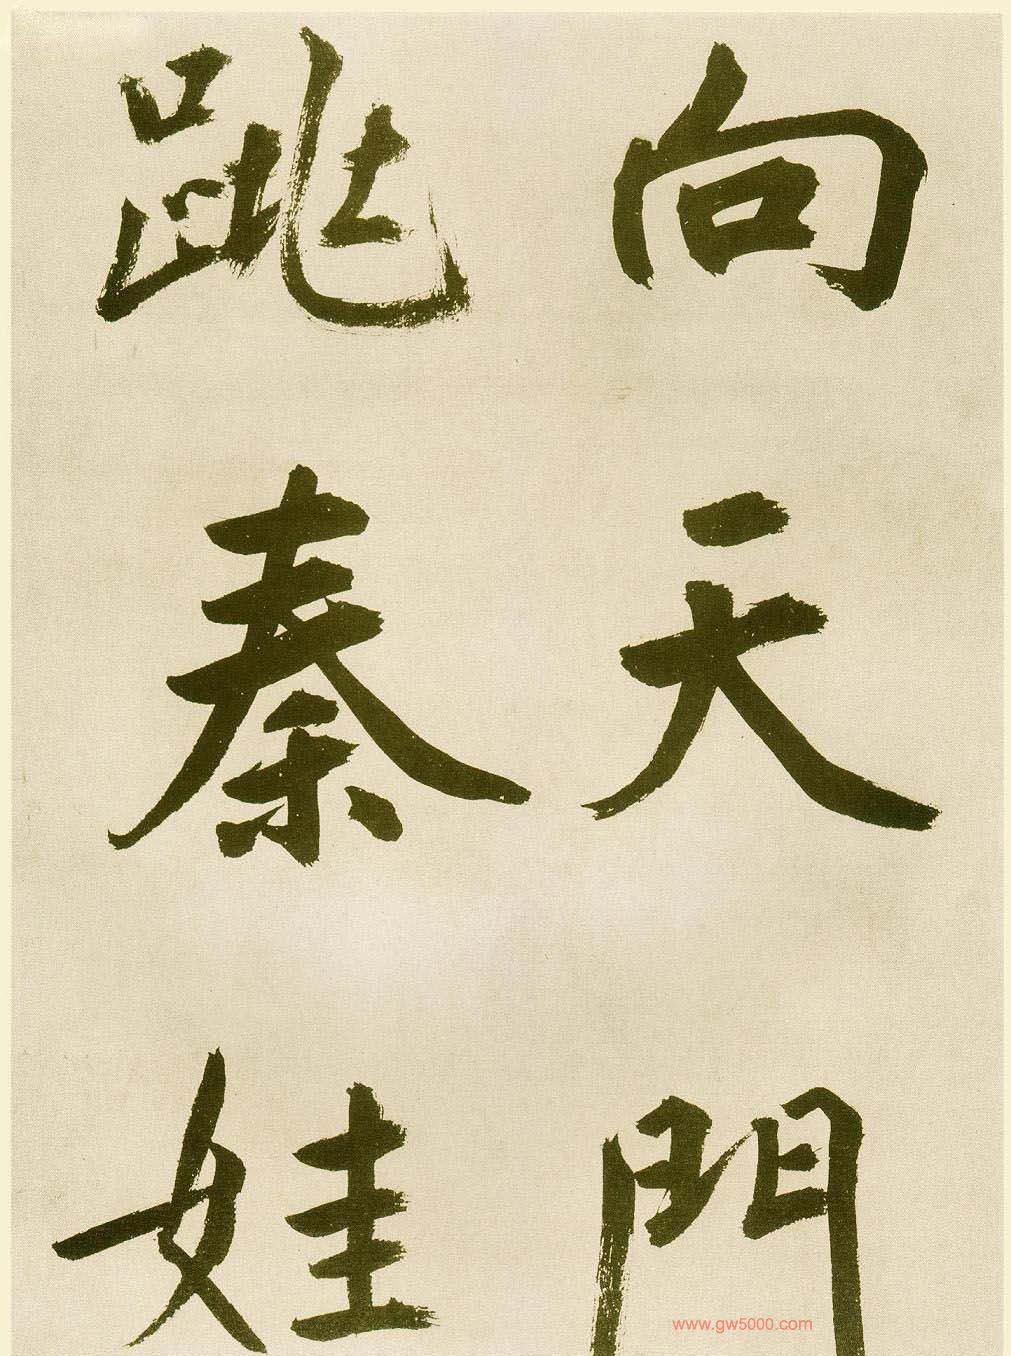 向天門
秦娃
www.gw5000.com